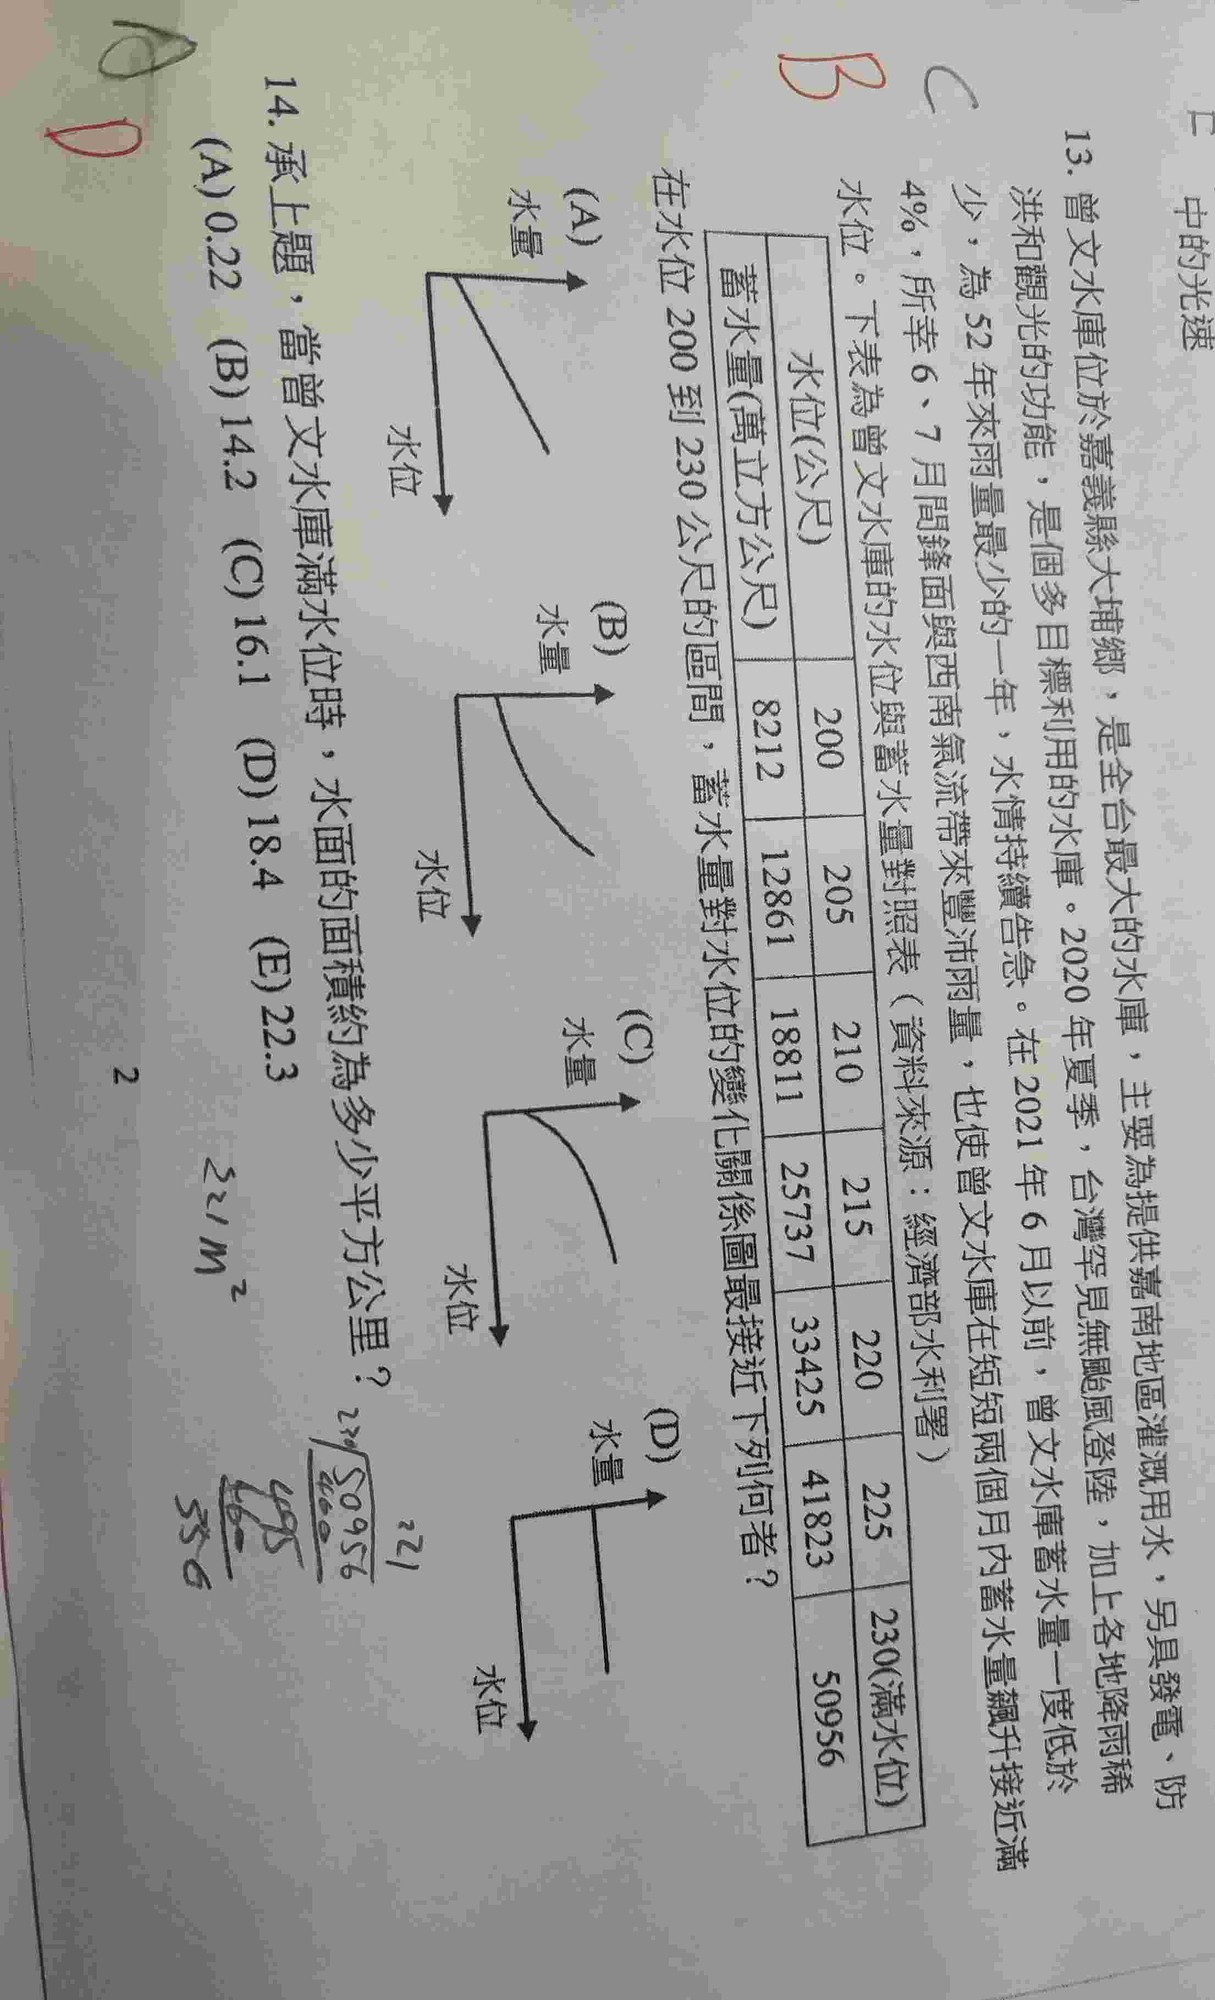 中的光速
13. 曾文水庫位於嘉義縣大埔鄉，是全台最大的水庫，主要為提供嘉南地區灌溉用水，另具發電、防
洪和觀光的功能，是個多目標利用的水庫。2020 年夏季，台灣罕見無颱風登陸，加上各地降雨稀
少，為 52 年來雨量最少的一年，水情持續告急。在 2021 年 6 月以前，曾文水庫蓄水量一度低於
C
4%，所幸 6、7 月間鋒面與西南氣流帶來豐沛雨量，也使曾文水庫在短短兩個月內蓄水量飆升接近滿
B
水位。下表為曾文水庫的水位與蓄水量對照表（資料來源：經濟部水利署）
水位(公尺) 200 205 210 215 220 225 230(滿水位)
蓄水量(萬立方公尺) 8212 12861 18811 25737 33425 41823 50956
在水位 200 到 230 公尺的區間，蓄水量對水位的變化關係圖最接近下列何者？
(A) (B) (C) (D)
水量 水量 水量 水量
水位 水位 水位 水位
14. 承上題，當曾文水庫滿水位時，水面的面積約為多少平方公里？
D
(A) 0.22 (B) 14.2 (C) 16.1 (D) 18.4 (E) 22.3
221
50956
2